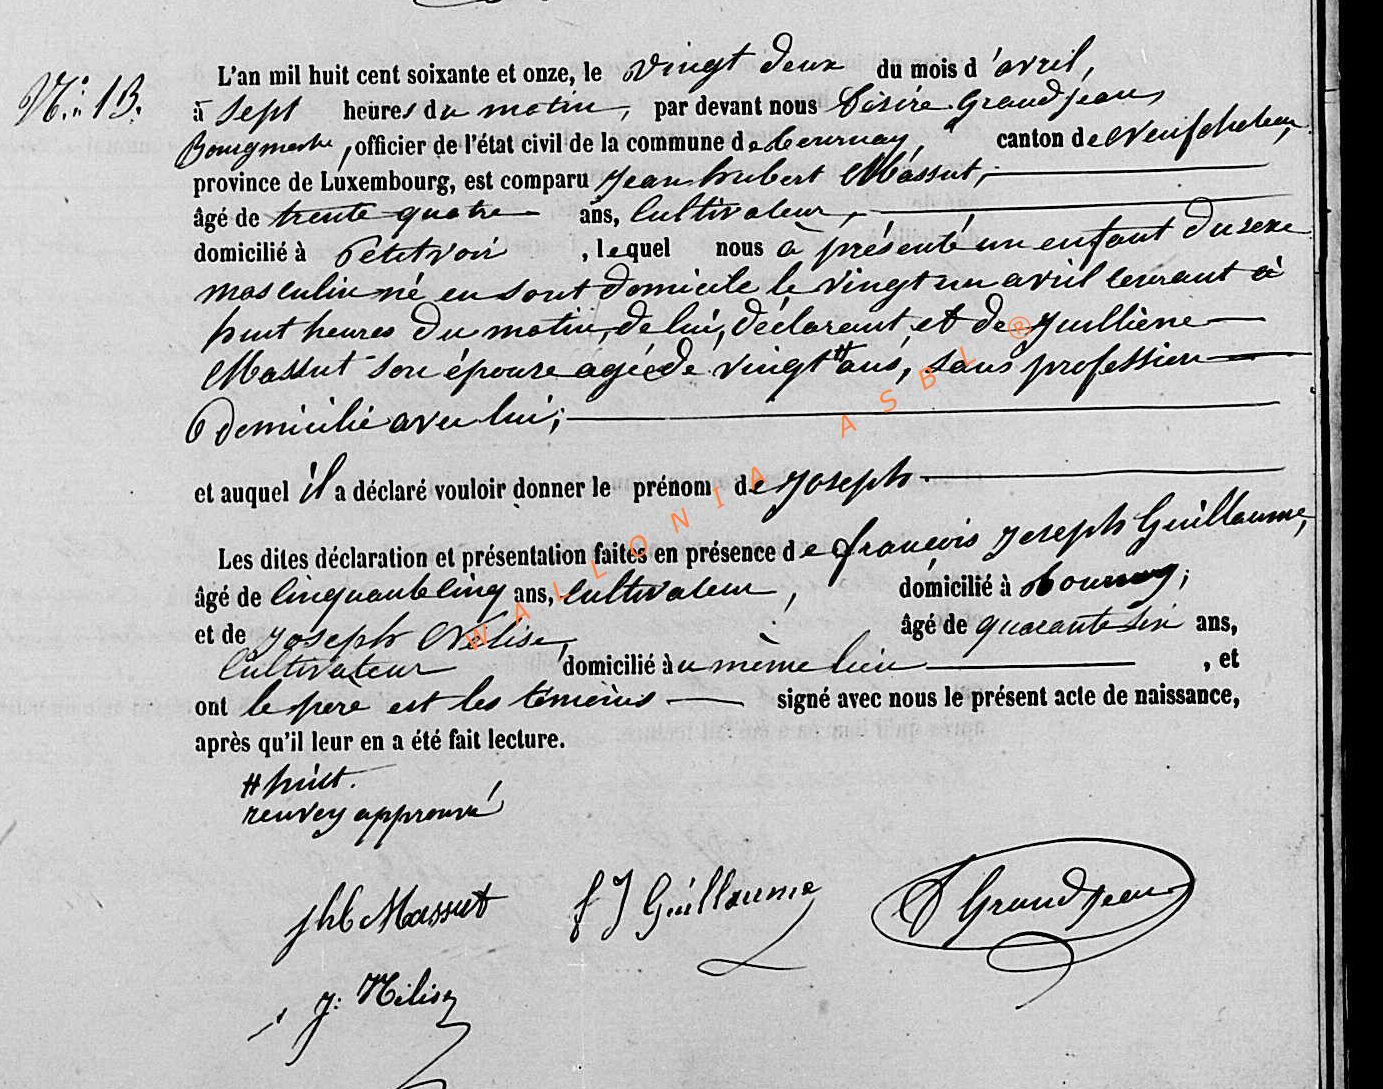 N.º 13.
L'an mil huit cent soixante et onze, le vingt deux du mois d'avril,
à sept heures du matin, par devant nous Désiré Grandjean,
Bourgmestre, officier de l'état civil de la commune de tournay, canton de Neufchateau,
province de Luxembourg, est comparu Jean hubert Massut,
âgé de trente quatre ans, Cultivateur,
domicilié à Petitvoir, lequel nous à présenté un enfant du sexe
masculin né en sont domicile le vingt un avril courant à
huit heures du matin, de lui, déclarant, et de Juilliène
Massut son épouse agée de vingt # ans, sans profession
domicilié avec lui;
et auquel il a déclaré vouloir donner le prénom de Joseph
Les dites déclaration et présentation faites en présence de françois Joseph Guillaume,
âgé de Cinquante Cinq ans, Cultivateur, domicilié à tournay;
et de Joseph Nélise, âgé de quarante six ans,
Cultivateur domicilié au même lieu, et
ont le père est les témoins signé avec nous le présent acte de naissance,
après qu'il leur en a été fait lecture.
# huit.
renvoy approuvé
jhb Massut f J Guillaume D Grandjean
J: Nélise
WALLONIA ASBL ®